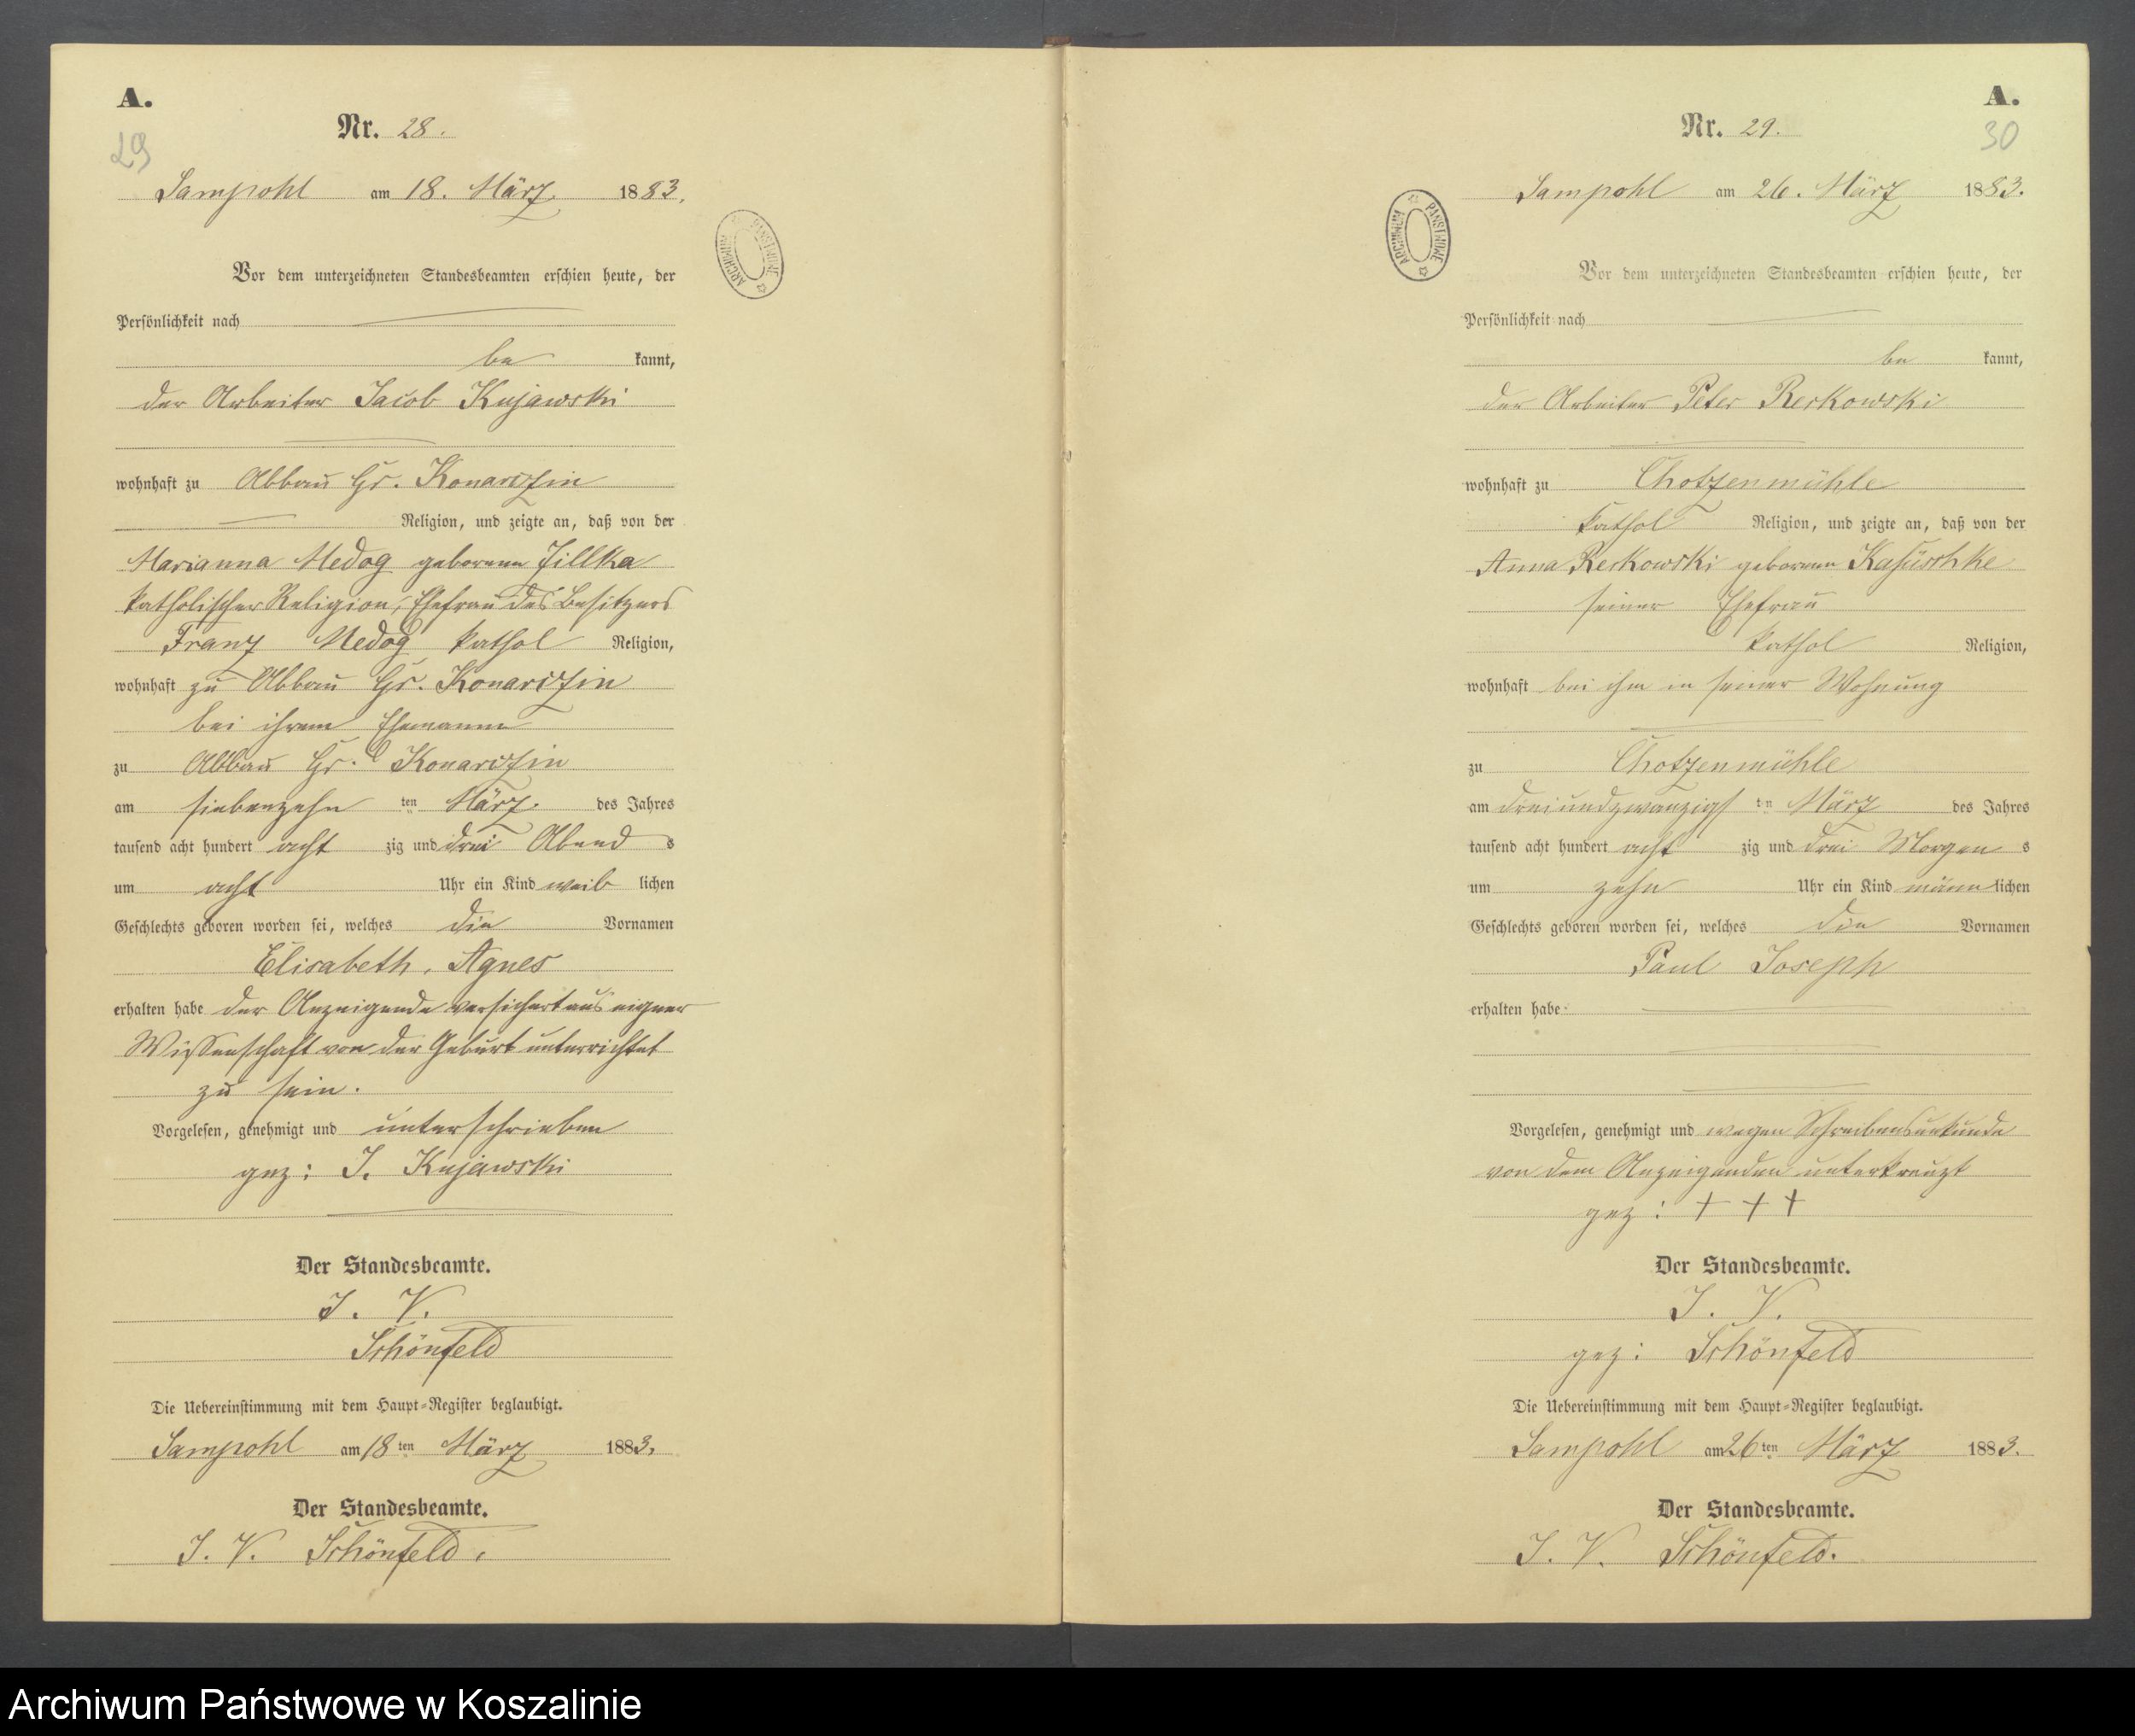 A.
29
Nr. 28.
Sampohl am 18. März 1883.
Vor dem unterzeichneten Standesbeamten erschien heute, der
Persönlichkeit nach
be kannt,
der Arbeiter Jacob Kujawski
wohnhaft zu Abbau Gr. Konarczin
Religion, und zeigte an, daß von der
Marianna Medog geborene Jillka
katholischer Religion, Ehefrau des Besitzers
Franz Medog kathol Religion,
wohnhaft zu Abbau Gr. Konarczin
bei ihrem Ehemanne
zu Abbau Gr. Konarczin
am siebenzehn ten März. des Jahres
tausend acht hundert acht zig und drei Abend s
um acht Uhr ein Kind weib lichen
Geschlechts geboren worden sei, welches die Vornamen
Elisabeth, Agnes
erhalten habe der Anzeigende versichert aus eigner
Wissenschaft von der Geburt unterrichtet
zu sein.
Vorgelesen, genehmigt und unterschrieben
gez: J. Kujawski
Der Standesbeamte.
J. V.
Schönfeld
Die Uebereinstimmung mit dem Haupt-Register beglaubigt.
Sampohl am 18 ten März 1883.
Der Standesbeamte.
J. V. Schönfeld.
ARCHIWUM PAŃSTWOWE
A.
30
Nr. 29.
Sampohl am 26. März 1883.
ARCHIWUM PAŃSTWOWE
Vor dem unterzeichneten Standesbeamten erschien heute, der
Persönlichkeit nach
be kannt,
der Arbeiter Peter Reckowski
wohnhaft zu Chotzenmühle
kathol Religion, und zeigte an, daß von der
Anna Reckowski geborene Kaschuschke
seiner Ehefrau
kathol Religion,
wohnhaft bei ihm in seiner Wohnung
zu Chotzenmühle
am dreiundzwanzigs ten März des Jahres
tausend acht hundert acht zig und drei Morgen s
um zehn Uhr ein Kind männ lichen
Geschlechts geboren worden sei, welches die Vornamen
Paul Joseph
erhalten habe
Vorgelesen, genehmigt und wegen Schreibensunkunde
von dem Anzeigenden unterkreuzt
gez: + + +
Der Standesbeamte.
J. V.
gez: Schönfeld
Die Uebereinstimmung mit dem Haupt-Register beglaubigt.
Sampohl am 26 ten März 1883.
Der Standesbeamte.
J. V. Schönfeld.
Archiwum Państwowe w Koszalinie